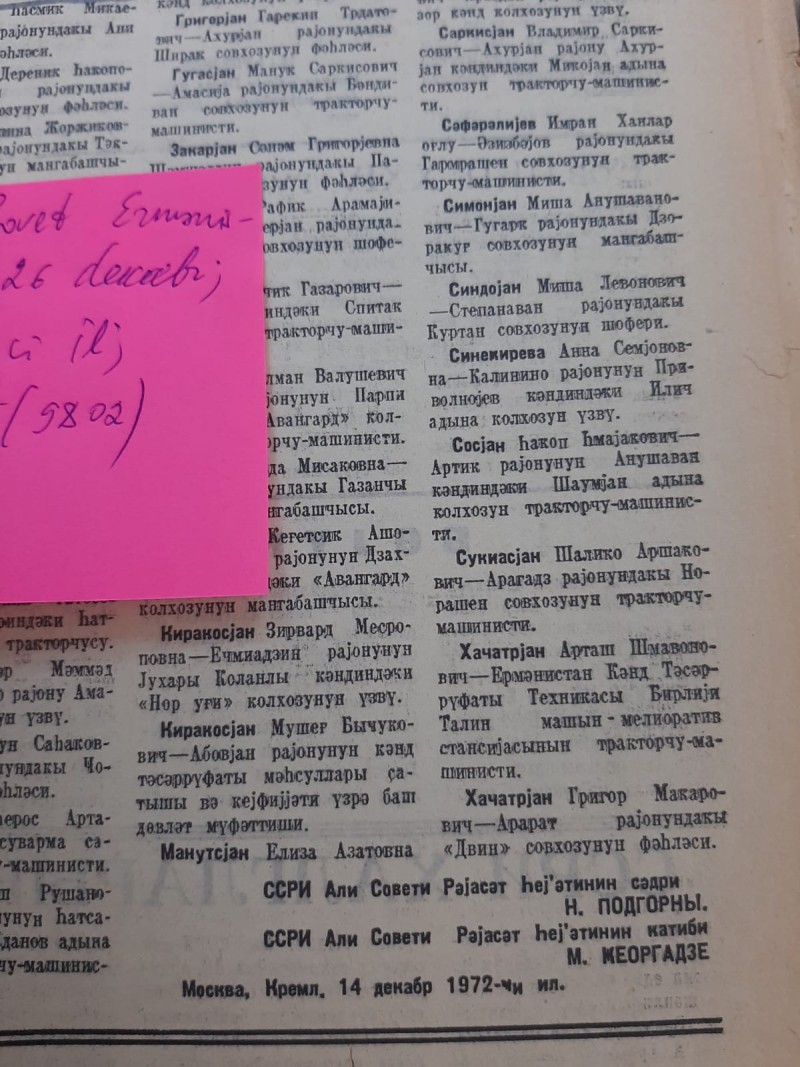 Һасмик Микае-
рајонундакы Ани
фәһләси.
Дереник Һакопо-
рајонундакы
фәһләси.
Жоржиков-
рајонундакы
мангабашчы-
кәнд колхозунун
Григорјан Гарекин Трдато-
вич—Ахурјан рајонундакы
Ширак совхозунун фәһләси.
Гугасјан Манук Саркисович
—Амасија рајонундакы Бәнди-
ван совхозунун тракторчу-
машинисти.
Закарјан Соном Григорјевна
рајонундакы Па-
фәһләси.
Рафик Арамаји-
рајонунда-
совхозунун шофе-
Газарович—
Спитак
тракторчу-маши-
Валушевич
Парпи
Авангард» кол-
Мисаковна—
Газанчы
Кегетсик Ашо-
рајонунун Дзах-
«Авангард»
колхозунун мангабашчысы.
Киракосјан Зирвард Месро-
повна—Ечмиадзин рајонунун
Јухары Коланлы кәндиндәки
«Нор уғи» колхозунун үзвү.
Киракосјан Мушег Бычуко-
вич—Абовјан рајонунун кәнд
тәсәррүфаты мәһсуллары са-
тышы вә кејфијјәти үзрә баш
дөвләт мүфәттиши.
Манутсјан Елиза Азатовна
кәнд колхозунун үзвү.
Саркисјан Владимир Сарки-
сович—Ахурјан рајону Ахур-
јан кәндиндәки Микојан адына
совхозун тракторчу-машинис-
ти.
Сәфәрәлијев Имран Ханлар
оглу—Әзизбәјов рајонундакы
Гармрашен совхозунун трак-
торчу-машинисти.
Симонјан Миша Анушавано-
вич—Гугарк рајонундакы Дзо-
ракуғ совхозунун мангабаш-
чысы.
Синдојан Миша Левонович
—Степанаван рајонундакы
Куртан совхозунун шофери.
Синекирева Анна Семјонов-
на—Калинино рајонунун При-
волнојев кәндиндәки Илич
адына колхозун үзвү.
Сосјан Һакоп Һмајакович—
Артик рајонунун Анушаван
кәндиндәки Шаумјан адына
колхозун тракторчу-машинис-
ти.
Сукиасјан Шалико Аршако-
вич—Арагадз рајонундакы Но-
рашен совхозунун тракторчу-
машинисти.
Хачатрјан Арташ Шмавоно-
вич—Ермәнистан Кәнд Тәсәр-
рүфаты Техникасы Бирлији
Талин машын-мелиоратив
стансијасынын тракторчу-ма-
шинисти.
Хачатрјан Григор Макаро-
вич—Арарат рајонундакы
«Двин» совхозунун фәһләси.
26 dekabr;
ci il;
(9802)
Һат-
тракторчусу.
Мәммәд
рајону Ама-
үзвү.
Саһаков-
Чо-
Арта-
суварма са-
Рушано-
Һатса-
адына
ССРИ Али Совети Рәјасәт Һеј'әтинин сәдри
Н. ПОДГОРНЫ.
ССРИ Али Совети Рәјасәт Һеј'әтинин катиби
М. ҜЕОРГАДЗЕ
Москва, Кремл, 14 декабр 1972-чи ил.